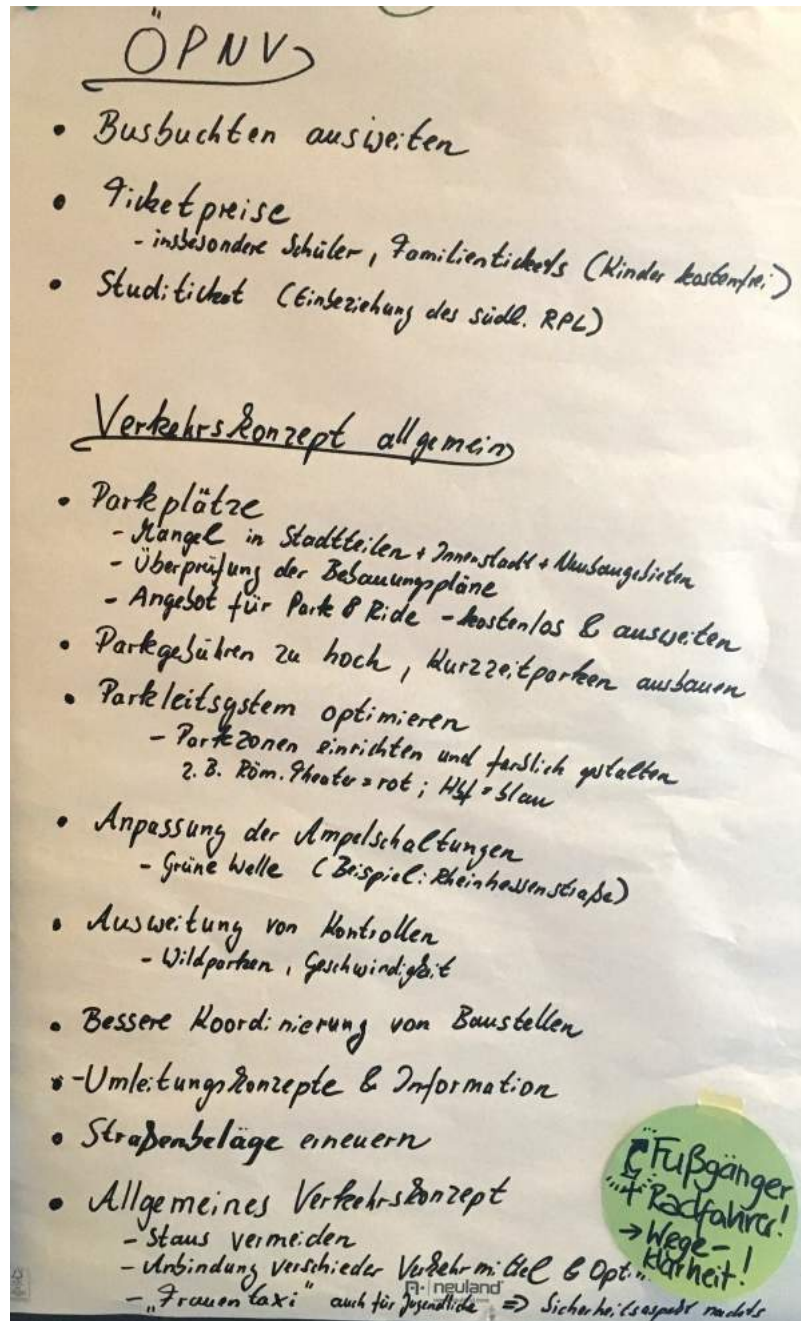 ÖPNV
• Busbuchten ausweiten
• Ticketpreise
- insbesondere Schüler, Familientickets (Kinder kostenfrei)
• Studiticket (Einbeziehung des südl. RPL)
Verkehrskonzept allgemein
• Parkplätze
- Mangel in Stadtteilen + Innenstadt + Neubaugebieten
- Überprüfung der Bebauungspläne
- Angebot für Park & Ride - kostenlos & ausweiten
• Parkgebühren zu hoch, Kurzzeitparken ausbauen
• Parkleitsystem optimieren
- Parkzonen einrichten und farblich gestalten
z. B. Röm. Theater = rot; Hbf = blau
• Anpassung der Ampelschaltungen
- Grüne Welle (Beispiel: Rheinhessenstraße)
• Ausweitung von Kontrollen
- Wildparken, Geschwindigkeit
• Bessere Koordinierung von Baustellen
• - Umleitungskonzepte & Information
• Straßenbeläge erneuern
• Allgemeines Verkehrskonzept
- Staus vermeiden
- Anbindung verschieder Verkehrmittel & Opti
- „Frauentaxi" auch für Jugendliche => Sicherheitsaspekt nachts
Fußgänger
+ Radfahrer!
→ Wege-
klarheit!
neuland